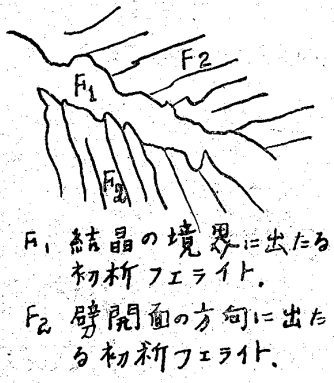 F2
F1
F2
F1 結晶の境界に出たる
初析フェライト.
F2 劈開面の方向に出た
る初析フェライト.